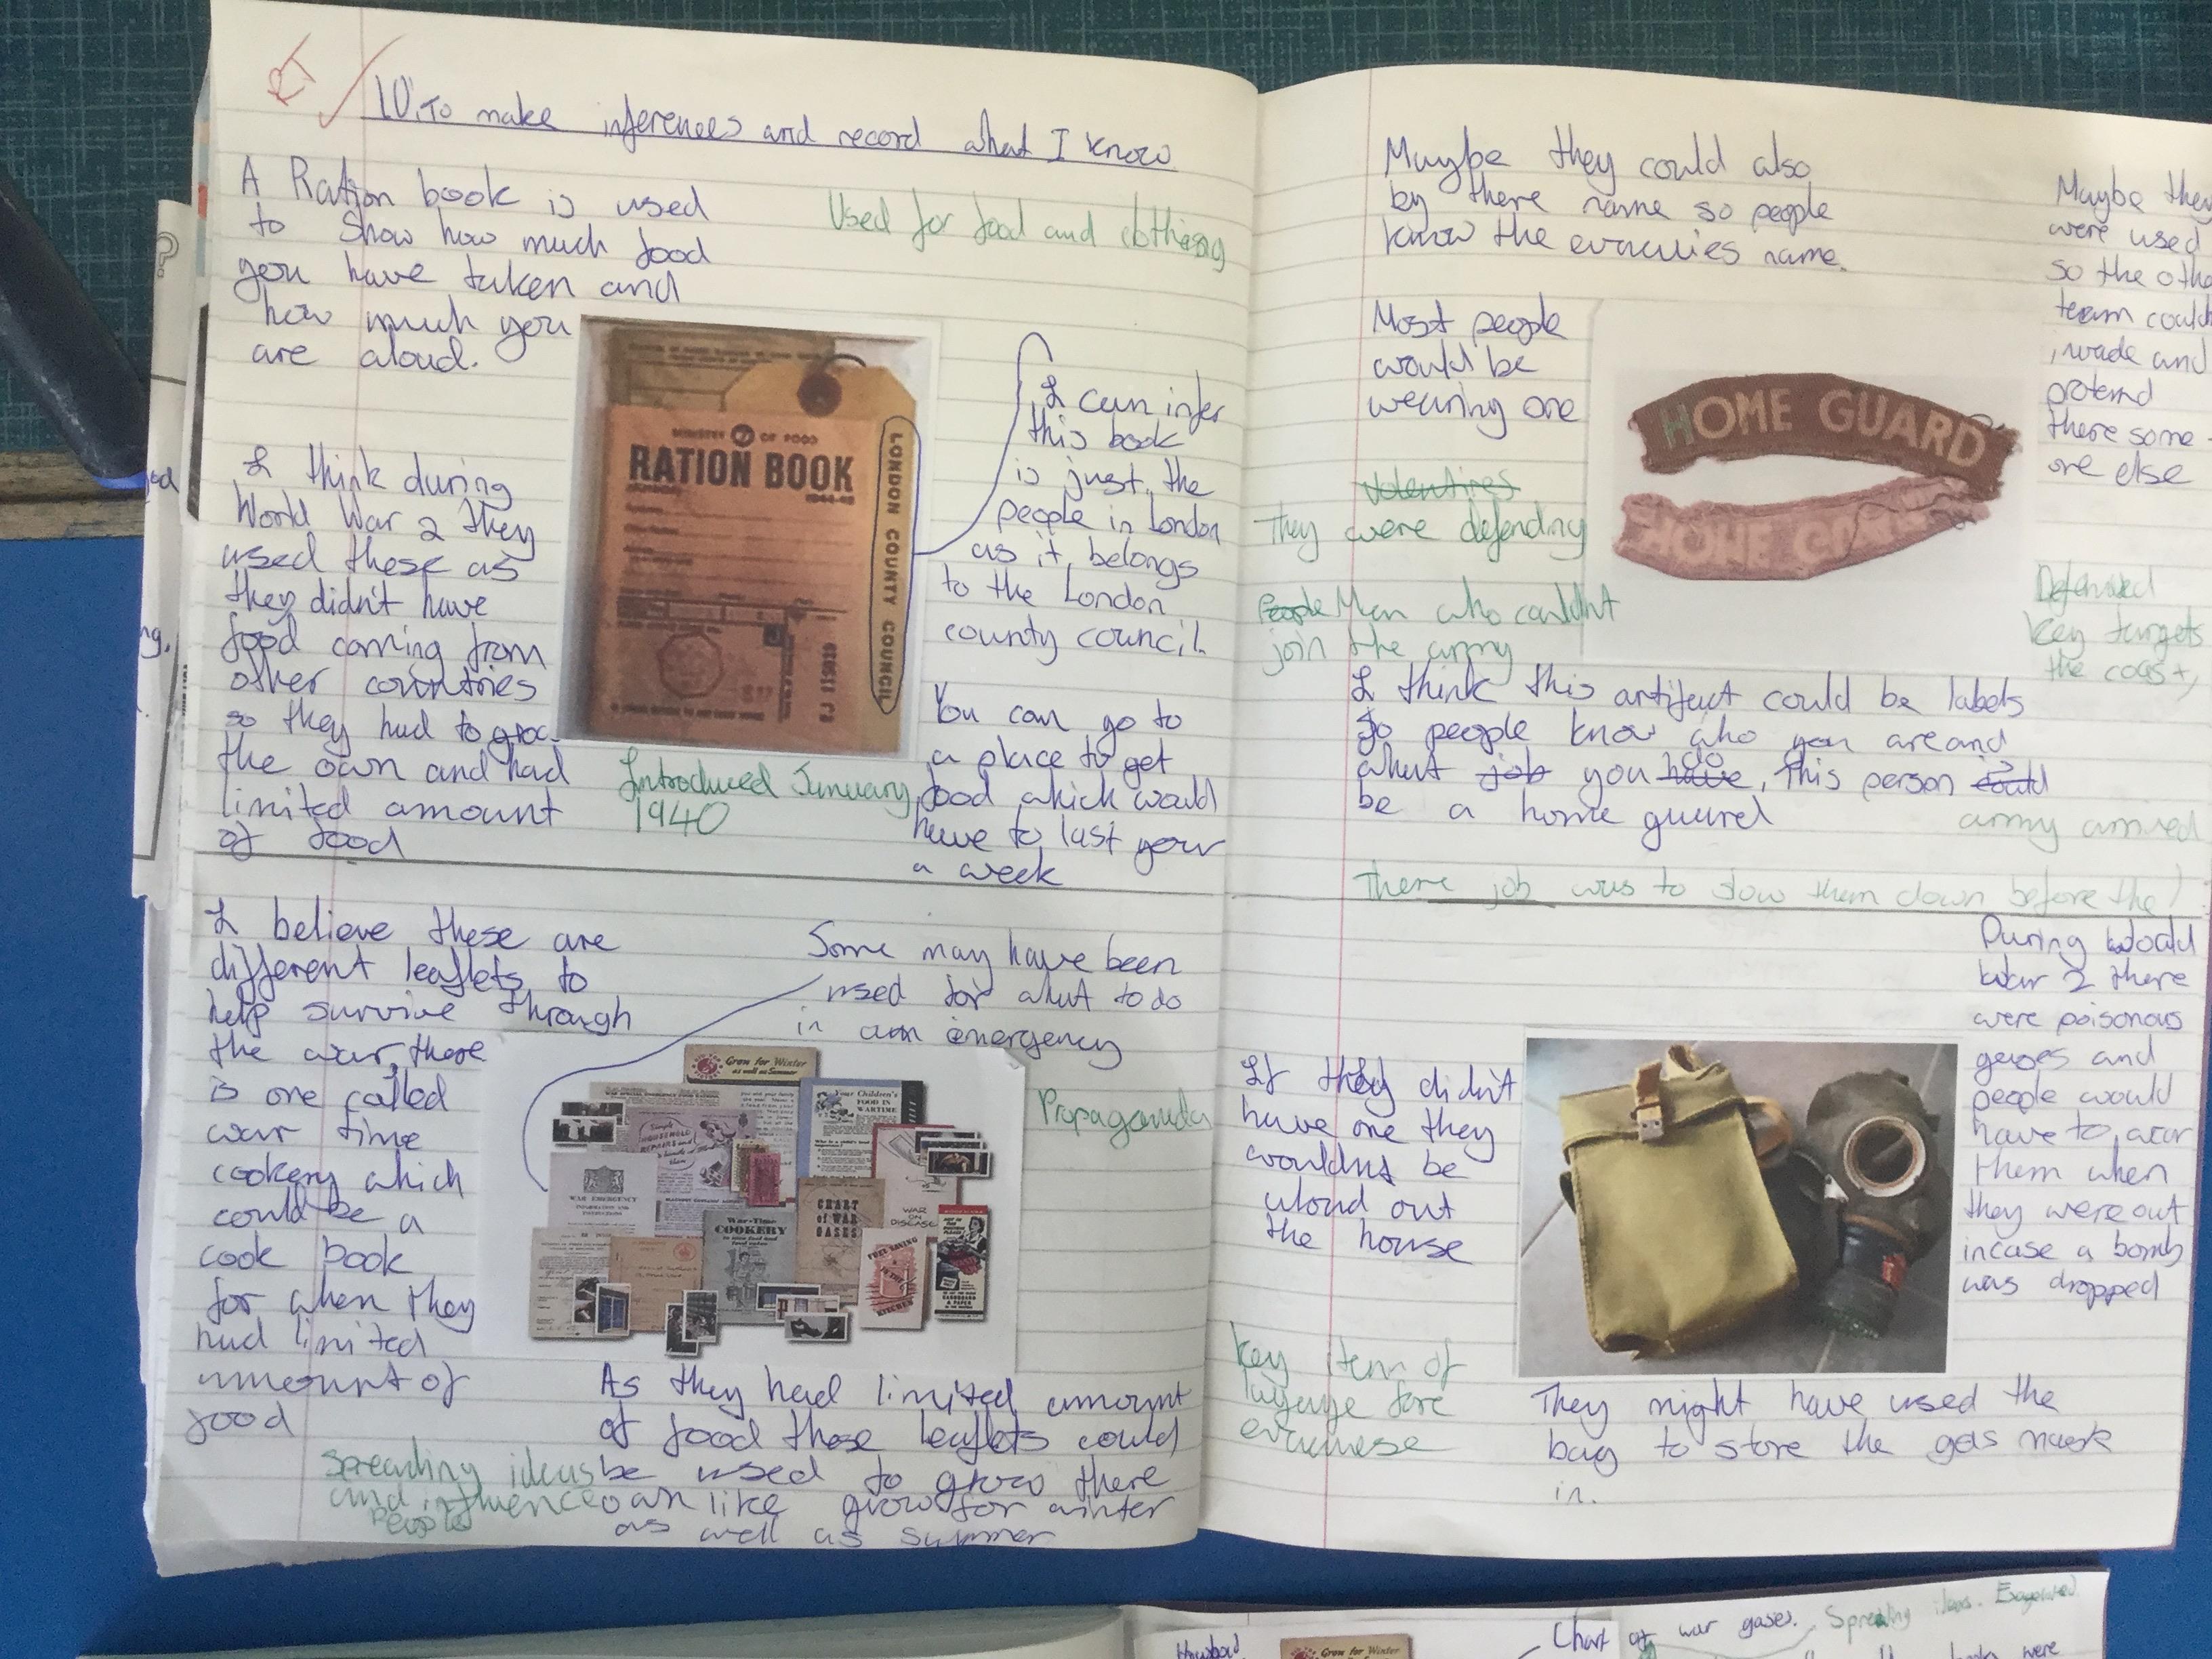 RT
LO: To make inferences and record what I know
A Ration book is used
to Show how much food
you have taken and
how much you
are aloud.
Used for food and clothing
I think during
World War 2 they
used these as
they didn't have
food coming from
other countries
so they had to grow
the own and had
limited amount
of food
MINISTRY OF FOOD
RATION BOOK
1944-45
LONDON COUNTY COUNCIL
I can infer
this book
is just the
people in London
as it belongs
to the London
county council.
Introduced January
1940
You can go to
a place to get
food which would
have to last your
a week
I believe these are
different leaflets to
help survive through
the war, there
is one called
war time
cookery which
could be a
cook book
for when they
had limited
amount of
food
Some may have been
used for what to do
in an emergency
Grow for Winter
as well as Summer
Your Children's
FOOD IN
WARTIME
WAR EMERGENCY
INFORMATION AND
INSTRUCTIONS
War-Time
COOKERY
CHART
of WAR
GASES
WAR
ON
DISEASE
FUEL SAVING
IN THE
KITCHEN
Propaganda
As they had limited amount
of food these leaflets could
be used to grow there
own like grow for winter
as well as summer
Spreading ideas
and influence
People
Maybe they could also
by there name so people
know the evacuies name.
Most people
would be
wearing one
HOME GUARD
HOME
Maybe they
were used
so the othe
team could
invade and
pretend
there some-
one else
They were defending
People Men who couldnt
join the army
Defended
key targets
the coast,
I think this artifact could be labels
so people know who you are and
what job you have do, this person could
be a home guard
army arrived
There job was to slow them down before the
During World
War 2 there
were poisonous
gases and
people would
have to wear
them when
they were out
incase a bomb
was dropped
If they didn't
have one they
wouldnt be
aloud out
the house
Key item of
lugage fore
evacuese
They might have used the
bag to store the gas mask
in.
Grow for Winter
Chart of war gases. Spreading ideas.
were